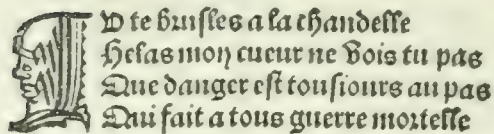 TU te brusles a la chandelle
Helas mon cueur ne vois tu pas
Que danger est tousiours au pas
Qui fait a tous guerre mortelle